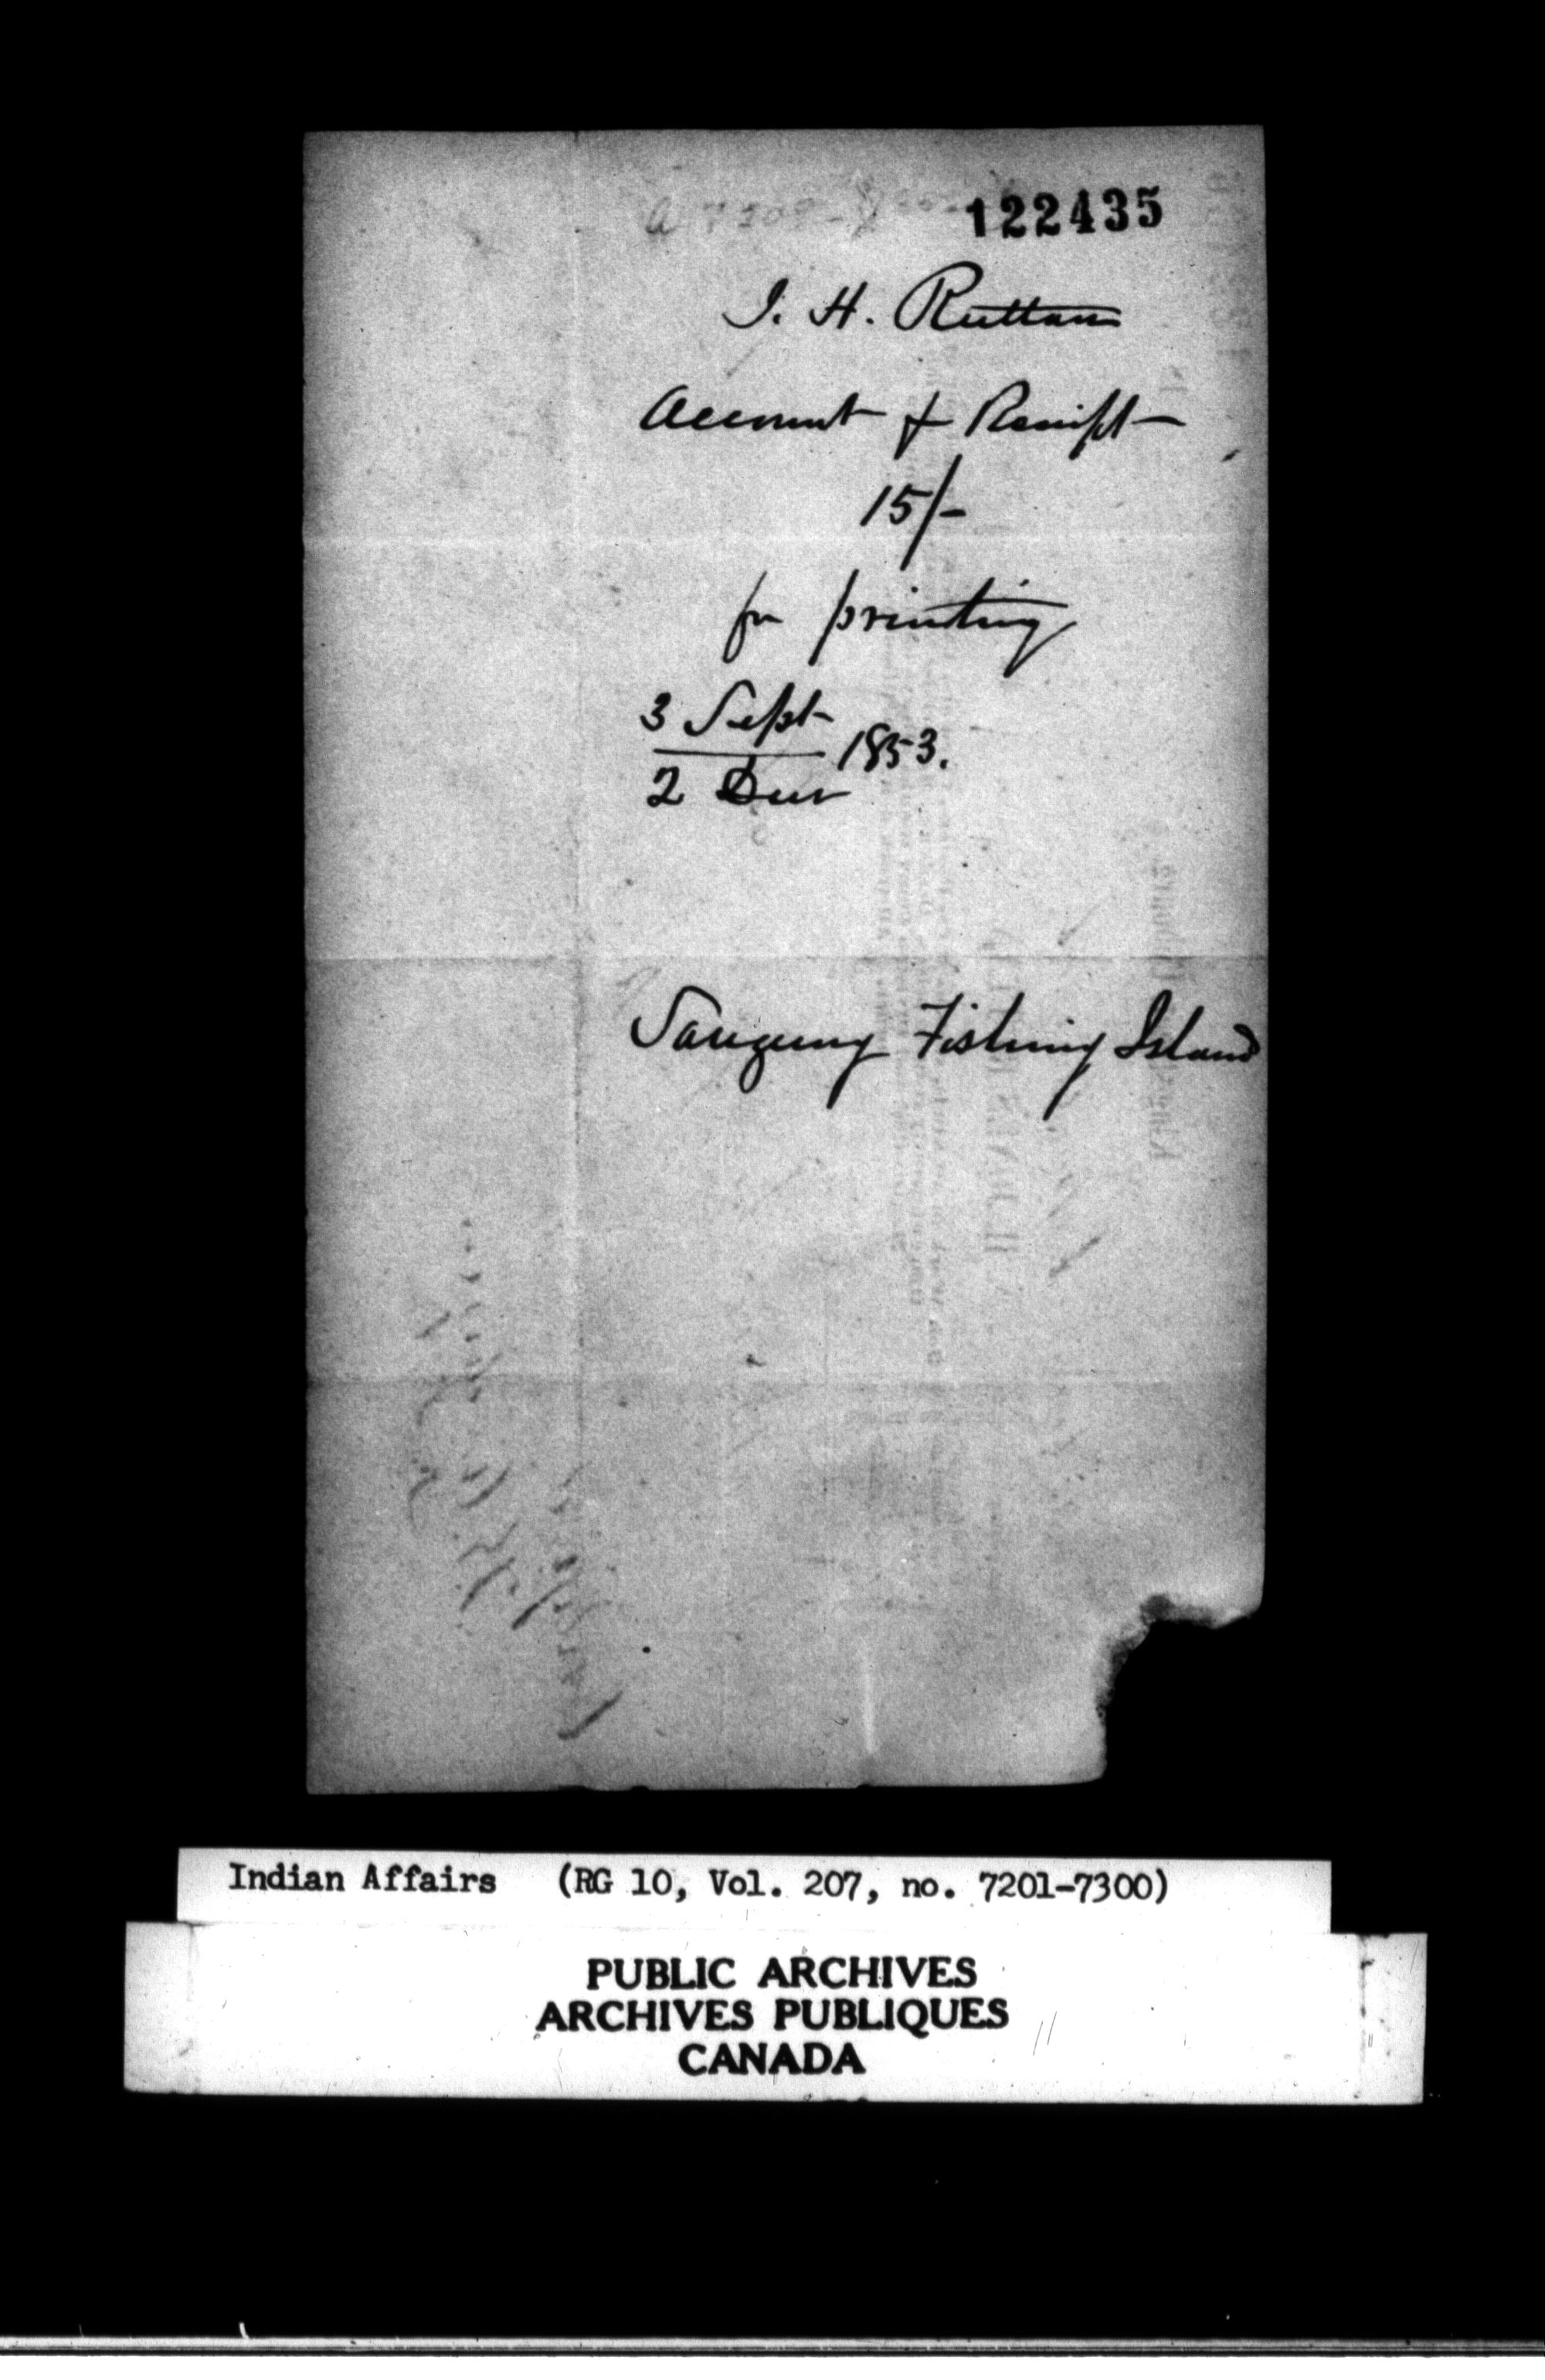 122435
J. H. Ruttan
Account & Receipt
15/-
for printing
3 Sept
1853.
2 Decr
Saugeeng Fishing Island
Indian Affairs (RG 10, Vol. 207, no. 7201-7300)
PUBLIC ARCHIVES
ARCHIVES PUBLIQUES
CANADA